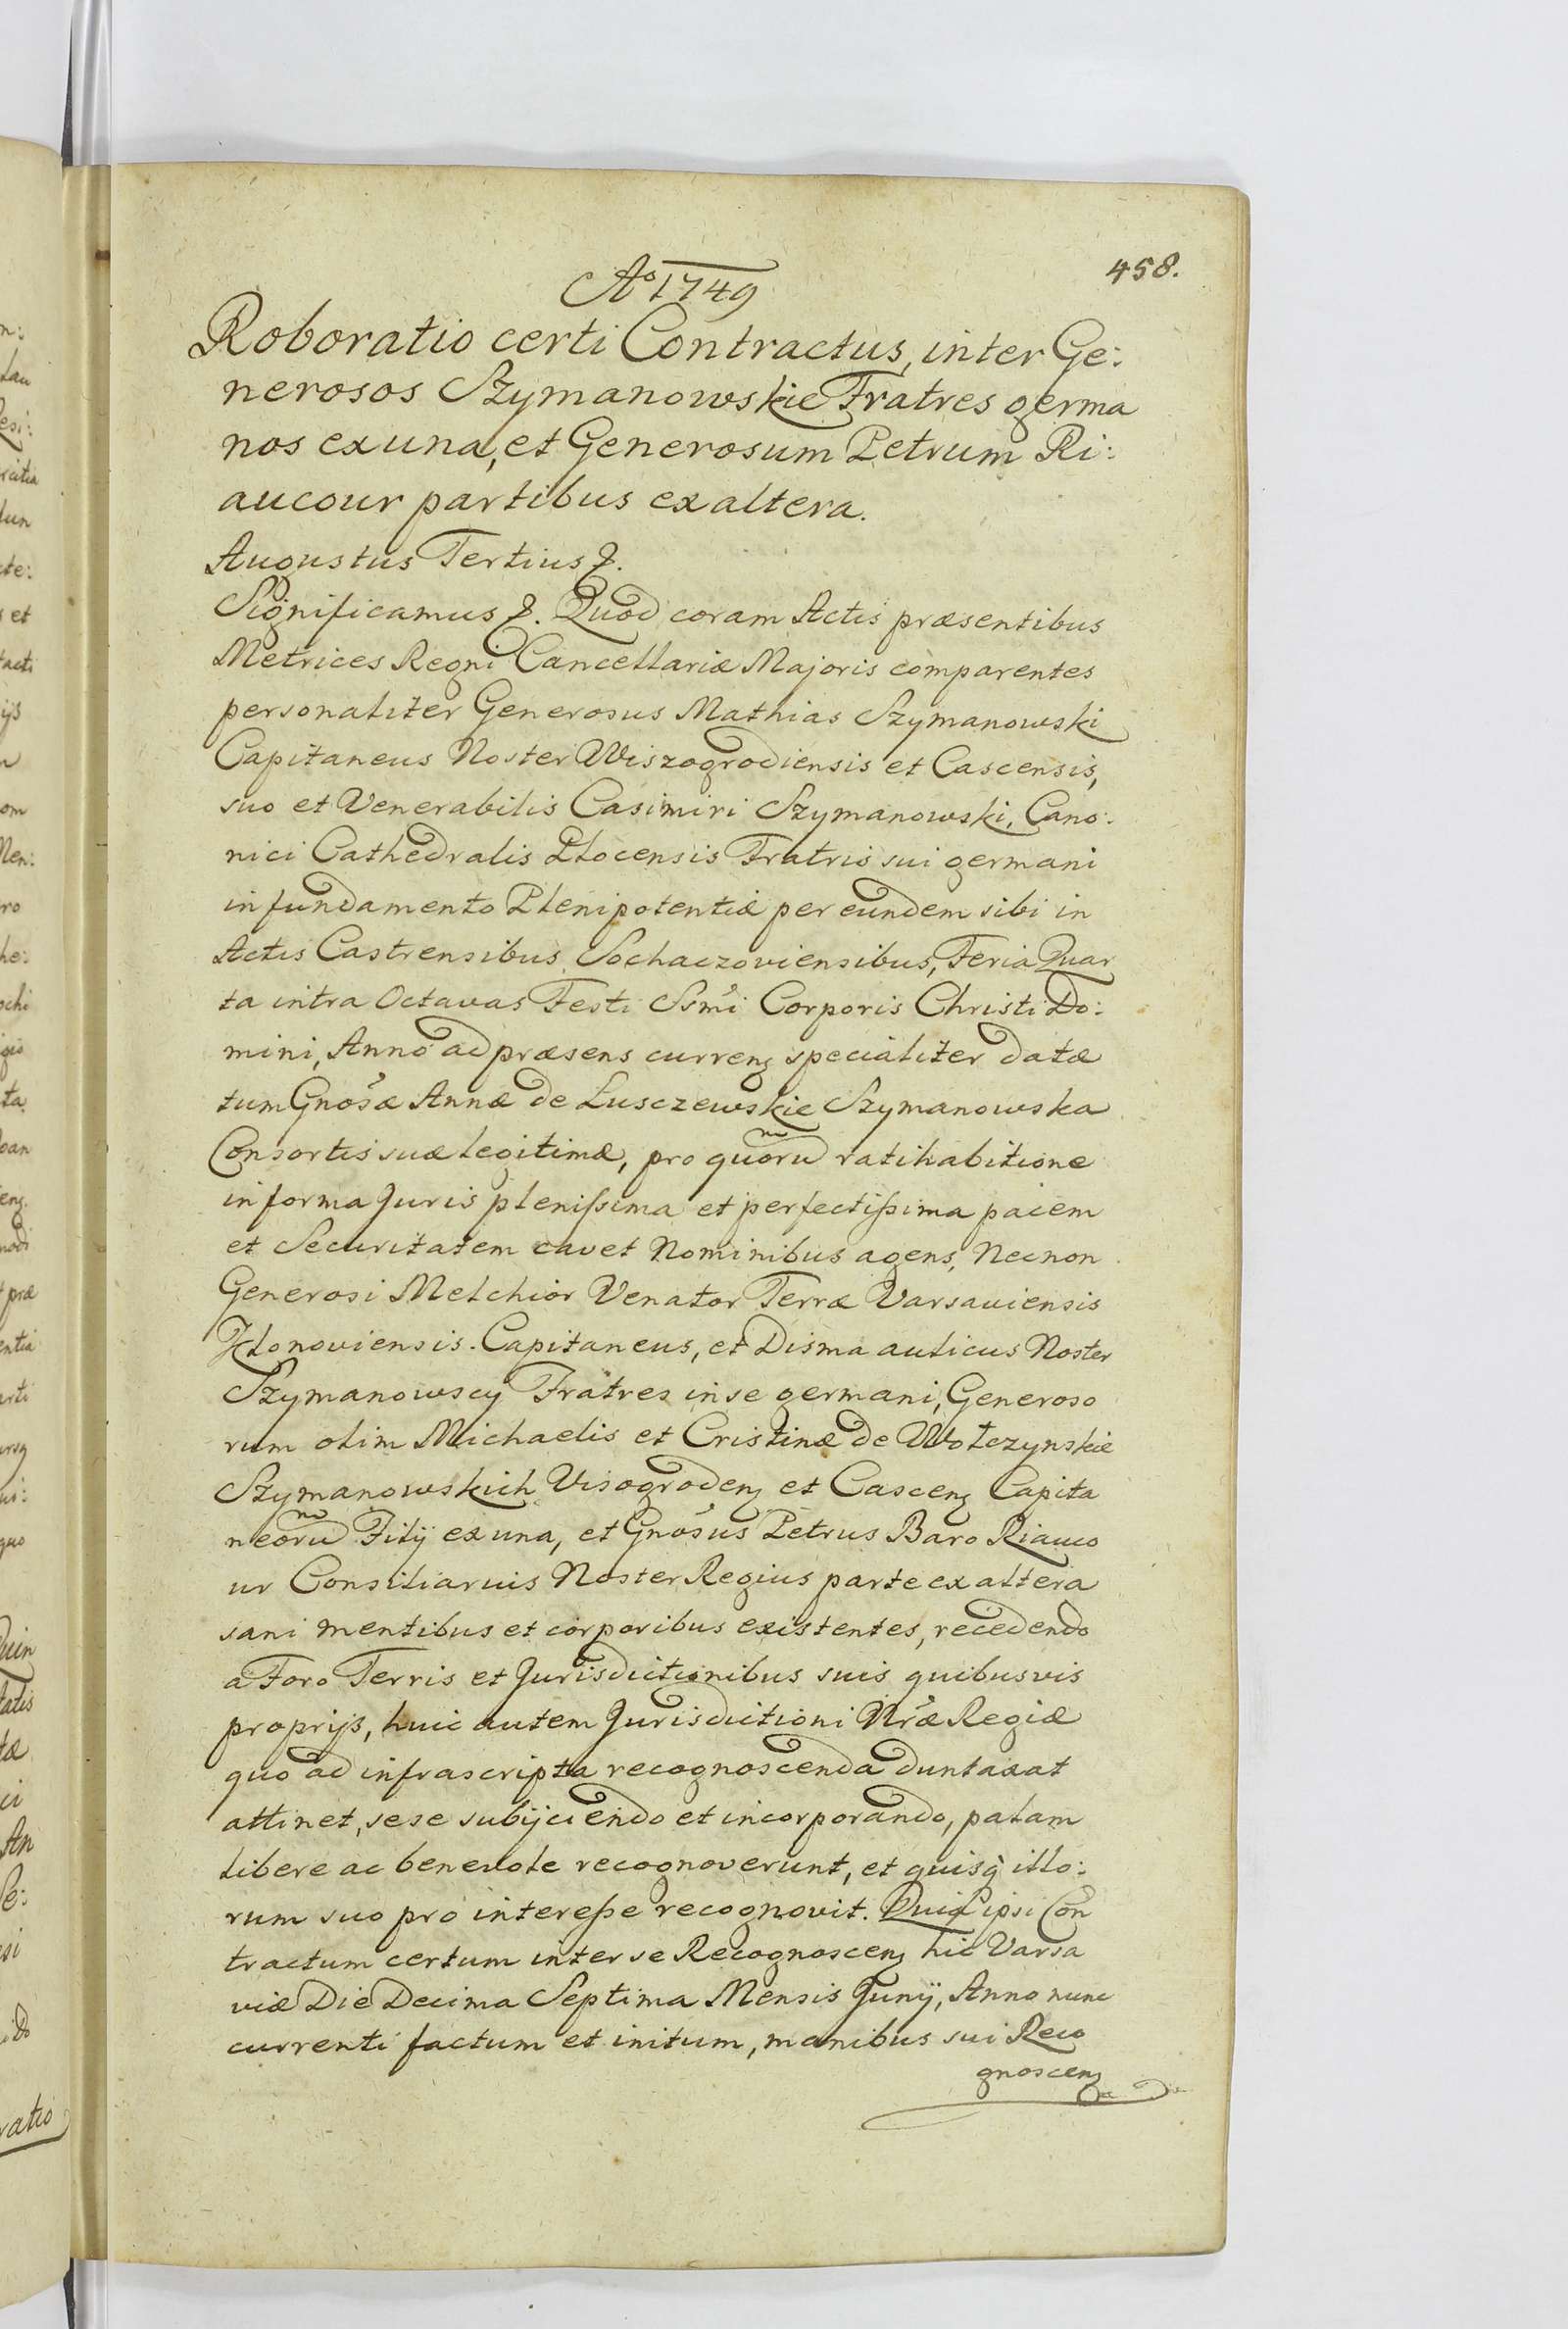 458.
Ao 1749
Roboratio certi Contractus, inter Ge:
nerosos Szymanowskie Fratres germa
nos ex una, et Generosum Petrum Ri:
aucour partibus ex altera.
Augustus Tertius &.
Significamus &. Quod coram Actis præsentibus
Metrices Regni Cancellariæ Majoris comparentes
personaliter Generosus Mathias Szymanowski
Capitaneus Noster Wiszogrodiensis et Cascensis,
suo et Venerabilis Casimiri Szymanowski, Cano:
nici Cathedralis Plocensis Fratris sui germani
in fundamento Plenipotentiæ per eundem sibi in
Actis Castrensibus Sochaczoviensibus, Feria Quar
ta intra Octavas Festi Ssmi Corporis Christi Do:
mini, Anno ad præsens curren specialiter datæ
tum Gnosæ Annæ de Lusczewskie Szymanowska
Consortis suæ legitimæ, pro quorum ratihabitione
in forma Juris plenissima et perfectissima pacem
et Securitatem cavet Nominibus agens, Necnon
Generosi Melchior Venator Terræ Varsaviensis
Klonoviensis Capitaneus, et Disma aulicus Noster
Szymanowscy Fratres inse germani, Generoso
rum olim Michaelis et Cristinæ de Wołczynskie
Szymanowskich Visogroden et Cascen Capita
neorum Filij ex una, et Gnosus Petrus Baro Riauco
ur Consiliarius Noster Regius parte ex altera
sani mentibus et corporibus existentes, recedendo
a Foro Terris et Jurisdictionibus suis quibusvis
proprijs, huic autem Jurisdictioni Nræ Regiæ
quo ad infrascripta recognoscenda duntaxat
attinet, sese subijciendo et incorporando, palam
libere ac benevole recognoverunt, et quisq illo:
rum suo pro interesse recognovit. Quia ipsi Con
tractum certum inter se Recognoscen hic Varsa
viæ Die Decima Septima Mensis Junij, Anno nunc
currenti factum et initum, manibus sui Reco
gnoscen